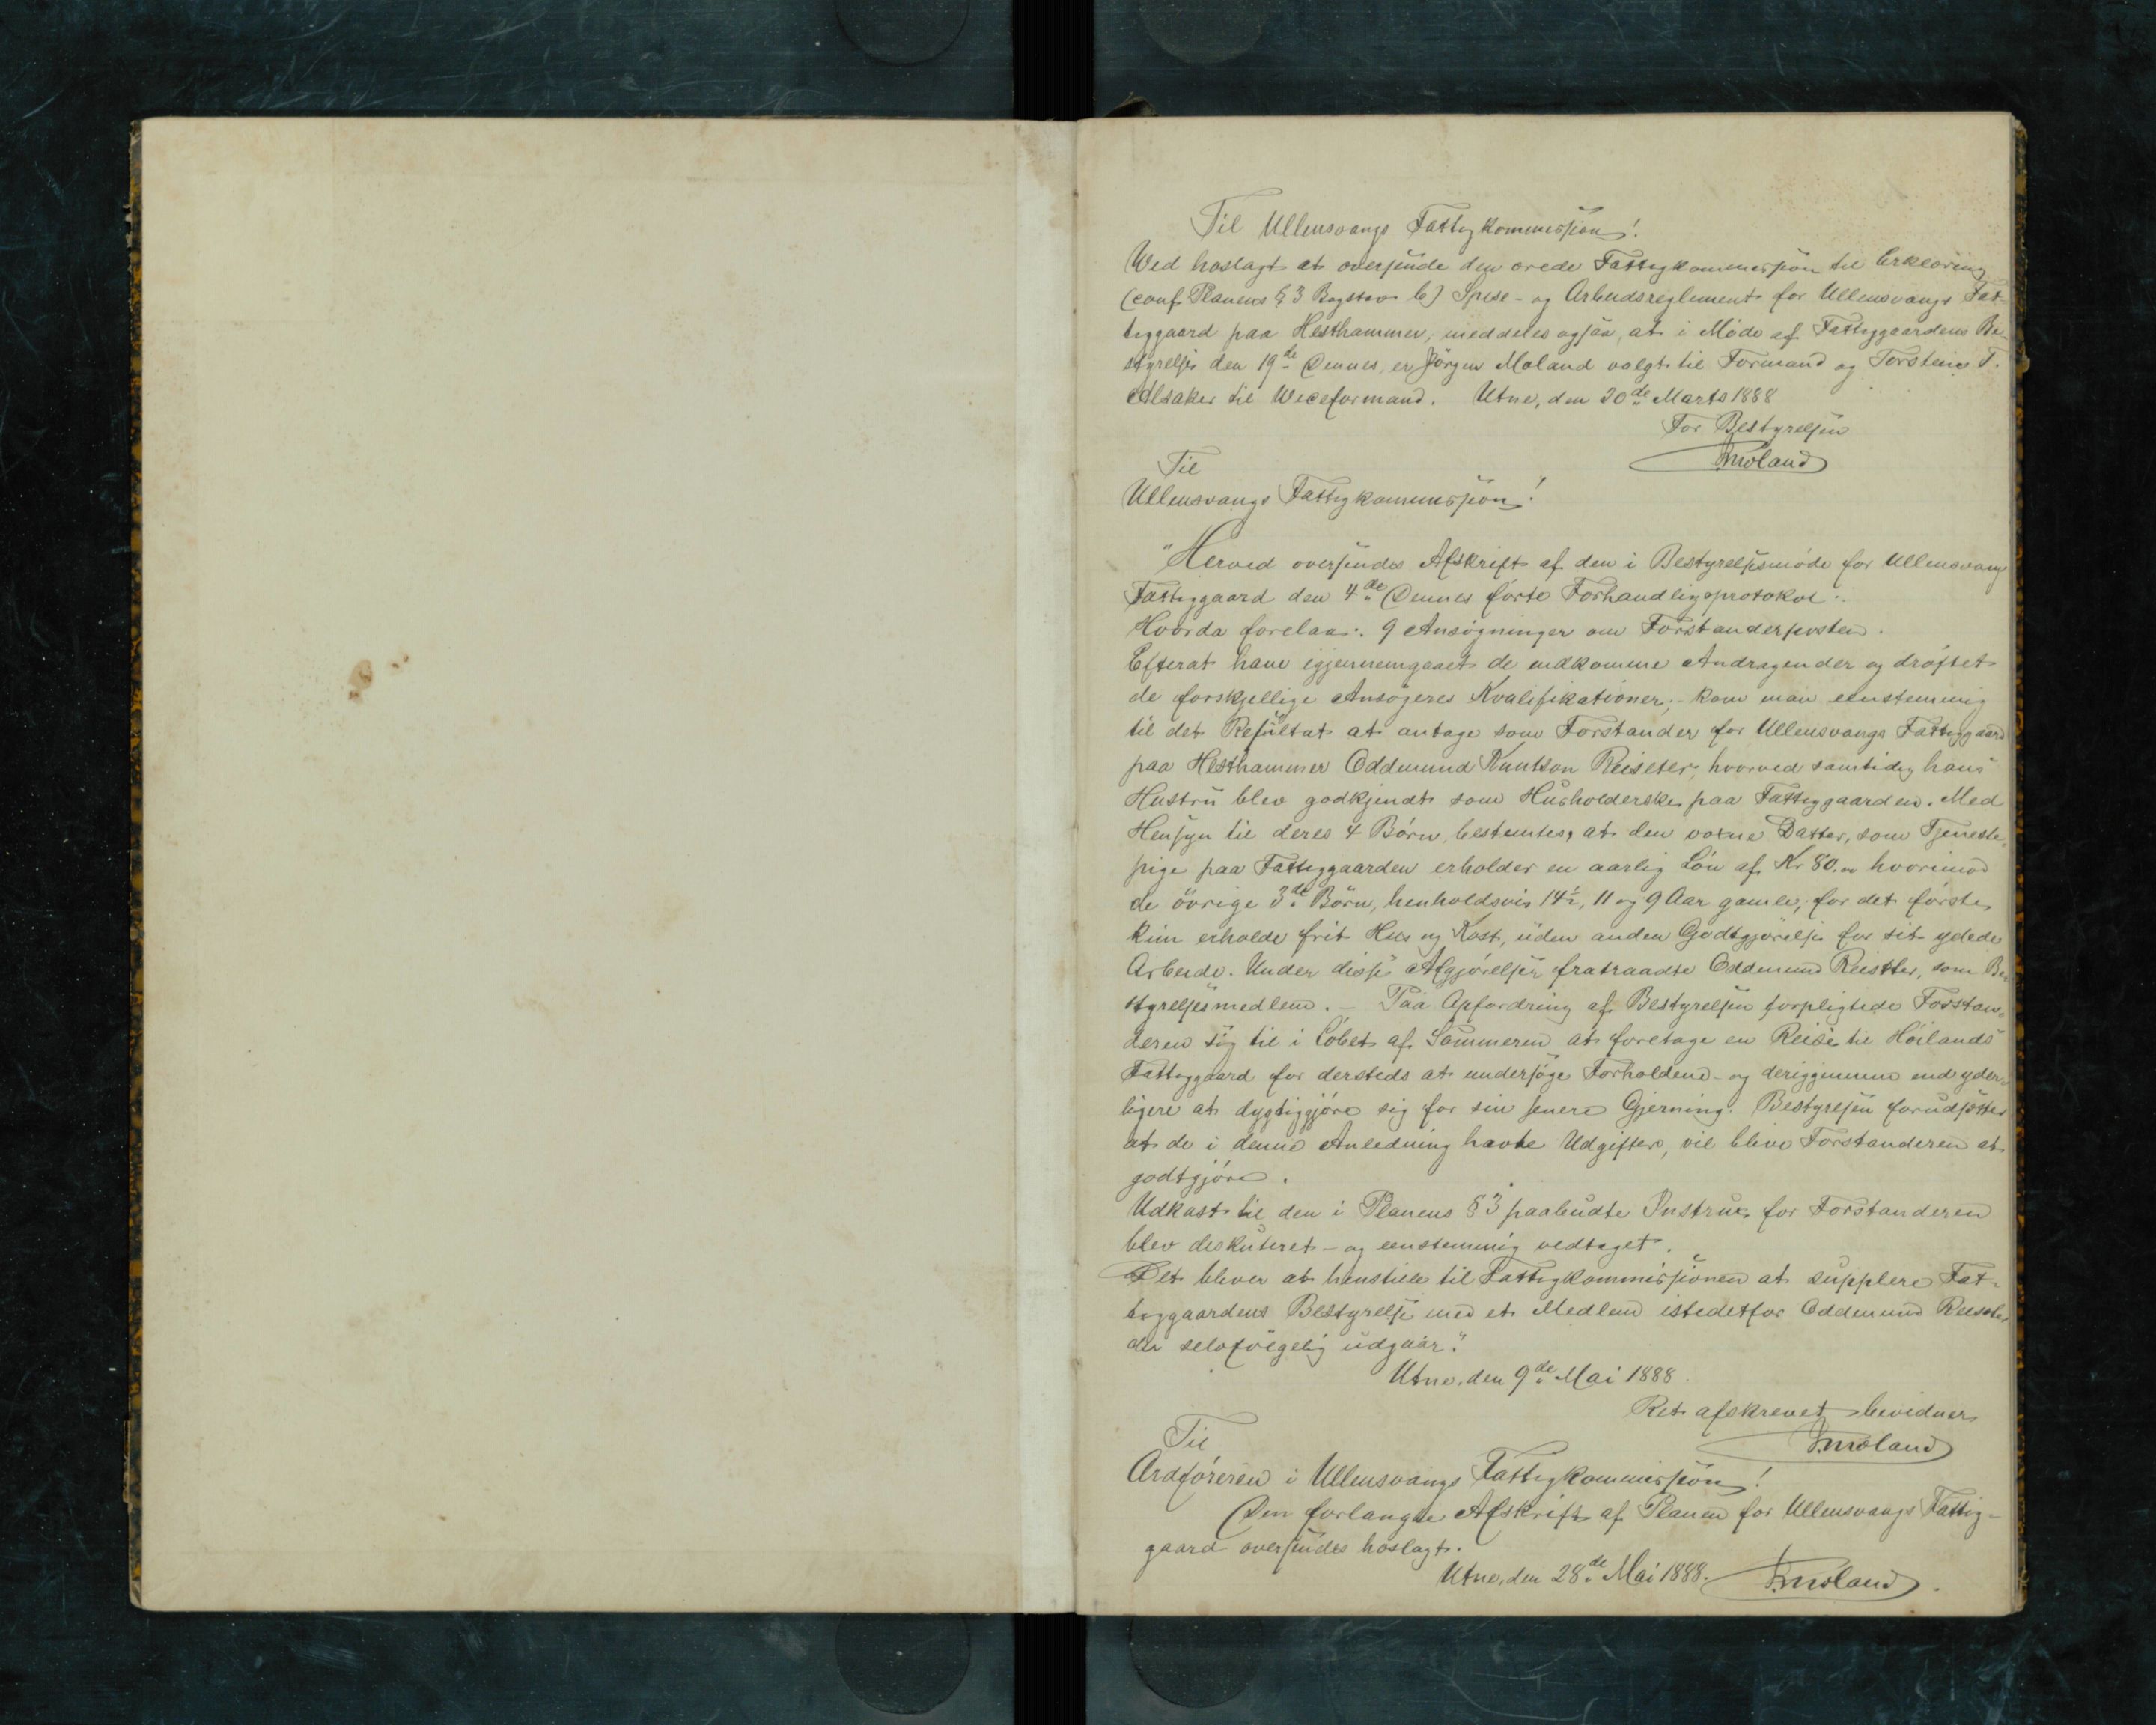 Til Ullensvangs Fattigkommission!
Wed hoslagt at oversende den ærede Fattigkommission til Erklæring
(conf. Planens § 3 Bogstav b) Spise- og Arbeidsreglement for Ullensvangs Fat-
tiggaard paa Hesthammer, meddeles ogsaa, at i Möde af Fattiggaardens Be-
styrelse den 19de Dennes, er Jörgen Moland valgt til Formand og Torstein T.
Alsaker til Viceformand. Utne, den 20de Marts 1888
For Bestyrelsen
JMoland
Til
Ullensvangs Fattigkommission!
"Herved oversendes Afskrift af den i Bestyrelsesmöde for Ullensvangs
Fattiggaard den 4de Dennes förte Forhandligsprotokol:.
Hvorda forelaa: 9 Ansögninger om Forstanderposten.
Efterat have igjennemgaaet de indkomne Andragender og dröftet
de forskjellige Ansögeres Kvalifikationer, kom man eenstemmig
til det Resultat at antage som Forstander for Ullensvangs Fattiggaard
paa Hesthammer Oddmund Knutson Reiseter, hvorved samtidig hans
Hustru blev godkjendt som Husholderske paa Fattiggaarden. Med
Hensyn til deres 4 Börn, bestemtes, at den voxne Datter, som Tjeneste-
pige paa Fattiggaarden erholder en aarlig Lön af Kr 80.00 hvorimod
de övrige 3de Börn, henholdsvis 14½, 11 og 9 Aar gamle, for det förste,
kun erholde frit Hus og Kost, uden anden Godtgjörelse for sit ydede
Arbeide. Under disse Afgjörelser fratraadte Oddmund Reiseter, som Be-
styrelsesmedlem. – Paa Opfordring af Bestyrelsen forpligtede Forstan-
deren sig til i Löbet af Sommeren at foretage en Reise til Höilands
Fattiggaard for dersteds at undersöge Forholdene - og deriggjennem end yder-
ligere at dygtiggjöre sig for sin senere Gjerning. Bestyrelsen forudsætter
at de i denne Anledning havte Udgifter, vil blive Forstanderen at
godtgjöre.
Udkast til den i Planens § 3 paabudte Instrux for Forstanderen
blev diskuteret - og eenstemmig vedtaget.
Det bliver at henstille til Fattigkommissionen at supplere Fat-
tiggaardens Bestyrelse med et Medlem istedetfor Oddmund Reiseter
der selvfölgelig udgaar."
Utne, den 9de Mai 1888.
Ret afskrevet bevidner
JMoland
Til
Ordföreren i Ullensvangs Fattigkommission!
Den forlangte Afskrift af Planen for Ullensvangs Fattig-
gaard oversendes hoslagt.
Utne, den 28de Mai 1888. JMoland.